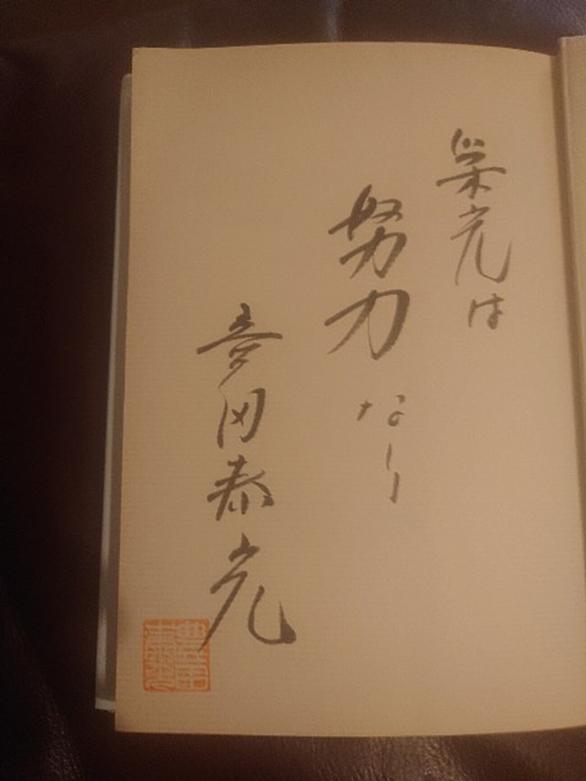 栄光は
努力なり
豊田泰光